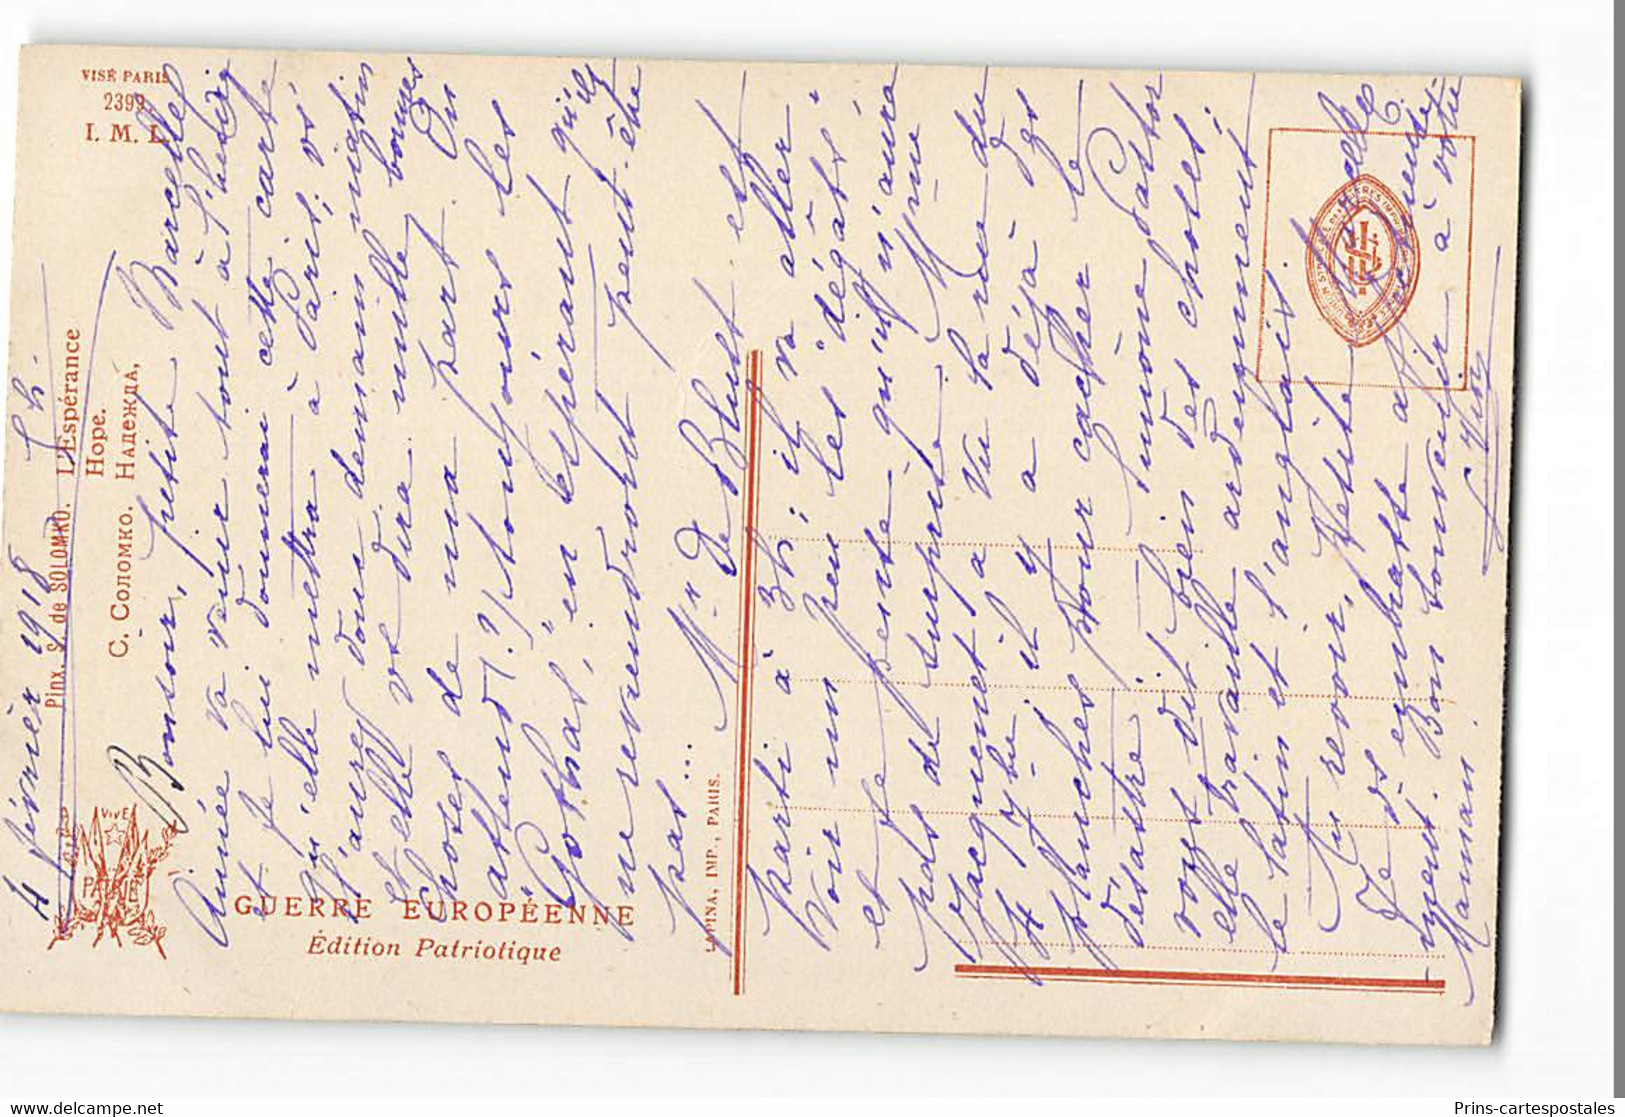 VISÉ PARIS
2399.
I. M. L.
Pinx. S. de SOLOMKO. L'Espérance
Hope.
С. Соломко. Надежда,
VIVE
LA
PATRIE
GUERRE EUROPÉENNE
Édition Patriotique
LAPINA, IMP., PARIS.
4 février 1918 5 h.
Bonsoir, petite Marcelle
Aimée va venir tout à l'heure
et je lui donnerai cette carte
qu'elle mettra à Paris; vs
l'aurez donc demain matin
et elle vs dira mille bonnes
choses de ma part. On
attend (?) toujours les
"Gothas", en espérant qu'ils
ne reviendront peut-être
pas...
Mr De Blust est
parti à 3h; il va aller
voir un peu les "dégâts"
et je pense qu'il n'aura
pas de surprise. Mme
Jacquenet a vu la rue du
4 7bre il y a déjà des
planches pour cacher le
désastre.
Simone Pastor
vous dit bien des choses;
elle travaille ardemment
le latin et l'anglais.
Au revoir, petite Marcelle
Je vs embrasse affectueuse-
ment. Bon souvenir à votre
Maman.